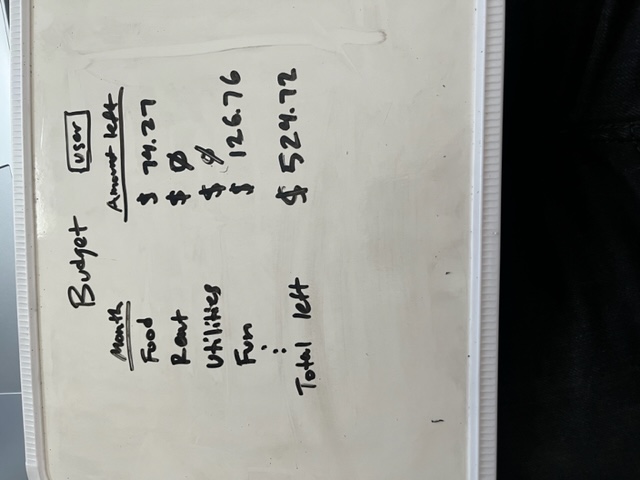 Budget user
Month Amount left
Food $ 74.27
Rent $ ∅
Utilities $ ∅
Fun $ 126.76
⋮
Total left $ 524.72